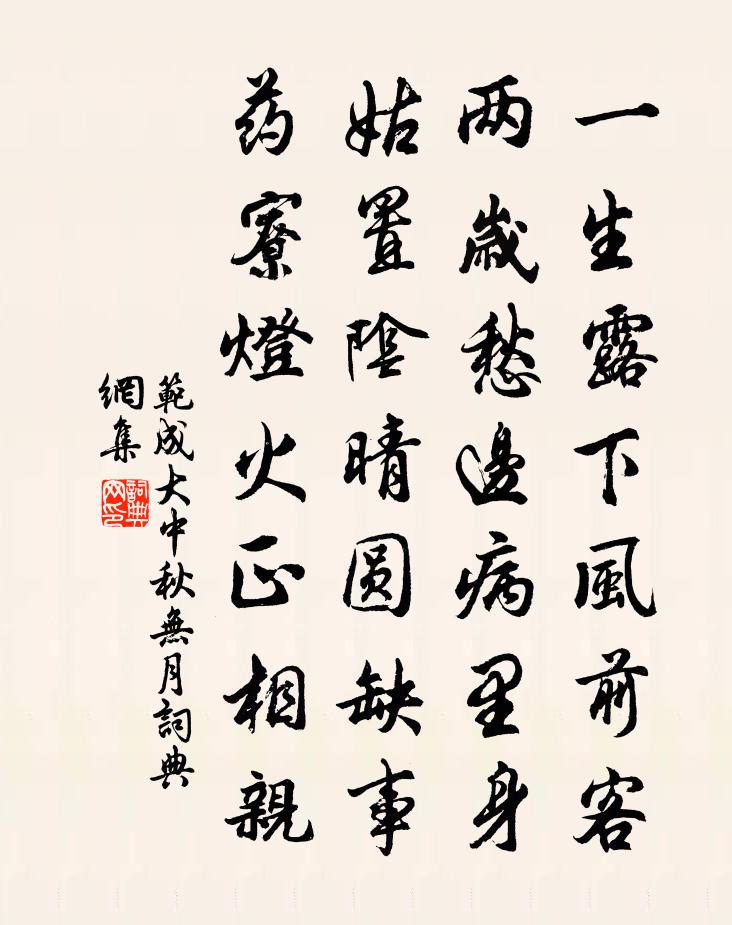 一生露下風前客
两歲愁邊病里身
姑置陰晴圆缺事
药寮燈火正相親
範成大中秋無月詞典
網集
詞典
网印